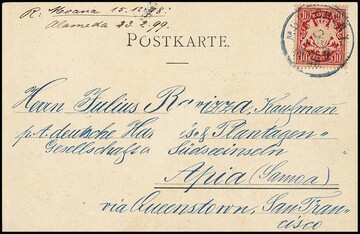 R. Moana 15.12.98.
Alameda 23.2.99.
POSTKARTE.
Herrn Julius Ravizza, Kaufman
p.t. deutsche Han is & Plantagen
Gesellschaft a Südseeinseln
Apia (Samoa)
via Queenstown, San Fran-
cisco
10 10